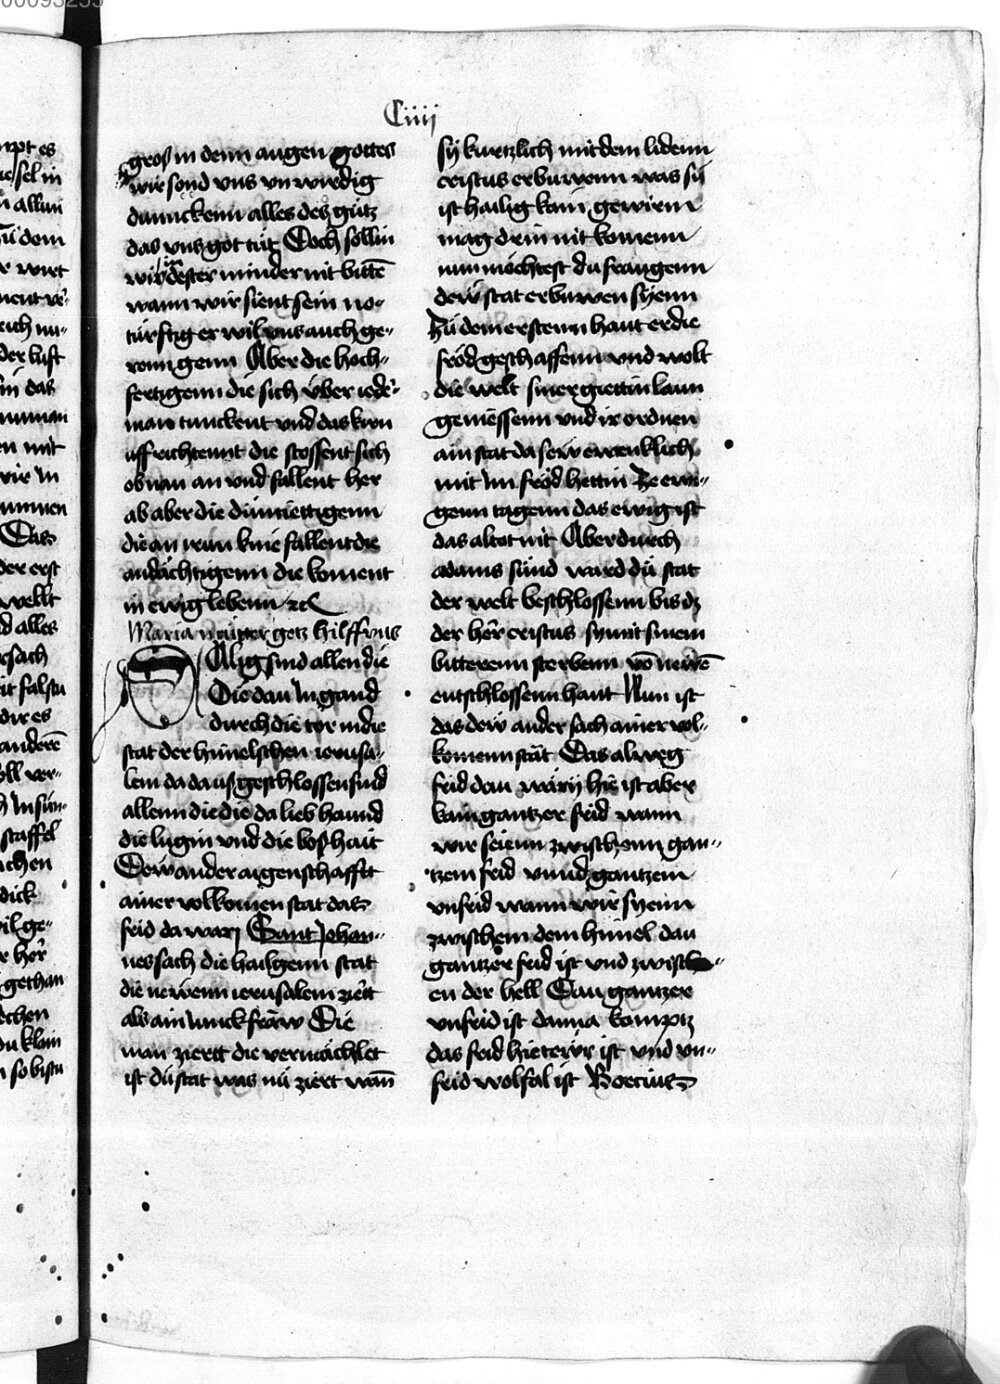 Ciiij
gros in denn augen gottes
wir sond vns vnwirdig
dunnckenn alles des gůtz
das vns got tůt Doch sollin
wir im dester minder nit bittē
wann wir sient sein no-
türftig er wil vns auch ge-
genn Aber die hoch-
fertigenn die sich v̈ber iedē-
man tunckent vnd das kinn
uffrichtennt die stossent sich
obnan an vnd fallent her
ab aber die diimiettigenn
die an irᷠ knie fallent die
andächtigenn die koment
in ewig lebenn ⁊c
Maria můter gotz hilff vns
SAlig sind allen die
Die dau in gand
durch die tor in die
stat der himelschen ierusa-
lem da da uß geschlossen sind
allenn die die da lieb haund
die lugin vnd die boßhait
Dew ander aigenschafft
ainer volkomen stat das
frid da wary Sant Johan-
nes sach die hailgenn stat
die newenn ierusalem ziert
als ain iunckfraw Die
man ziertt die vermächlet
ist dü stat was nu ziert wañ
sy kurtzlich mit dem lidenn
cristus erbuwenn was sy
ist hailig kain gewirm
mag dr ein nit komenn
nun möchtest du fraugenn
dew stat erbuwen syenn
Zů dem erstenn haut er die
fröd geschaffenn vnd wolt
die welt siner giettin laun
geniessenn vnd ir ordnen
ain stat da sew ewenklich
mit im fröd hettin Ze ewi-
genn tagenn das ewig ist
das altot nit Aber durch
adams sünd ward dü stat
der welt beschlossenn bis dz
der her cristus sy mit sinem
bitterenn sterbenn vō newē
entschlossenn haut Nun ist
das dew ander sach ainer vol-
komenn stät Das alweg
frid dau wäry hie ist aber
kain gantzer frid wann
wir seienn zwischenn gan-
tzem frid vnnd gantzem
vnfrid wann wir syenn
zwischem dem himel dau
gantzer frid ist vnd zwisch-
en der hell Dau gantzer
vnfrid ist danna komptz
das frid hie tewr ist vnd vn-
frid wolfal ist Boecius